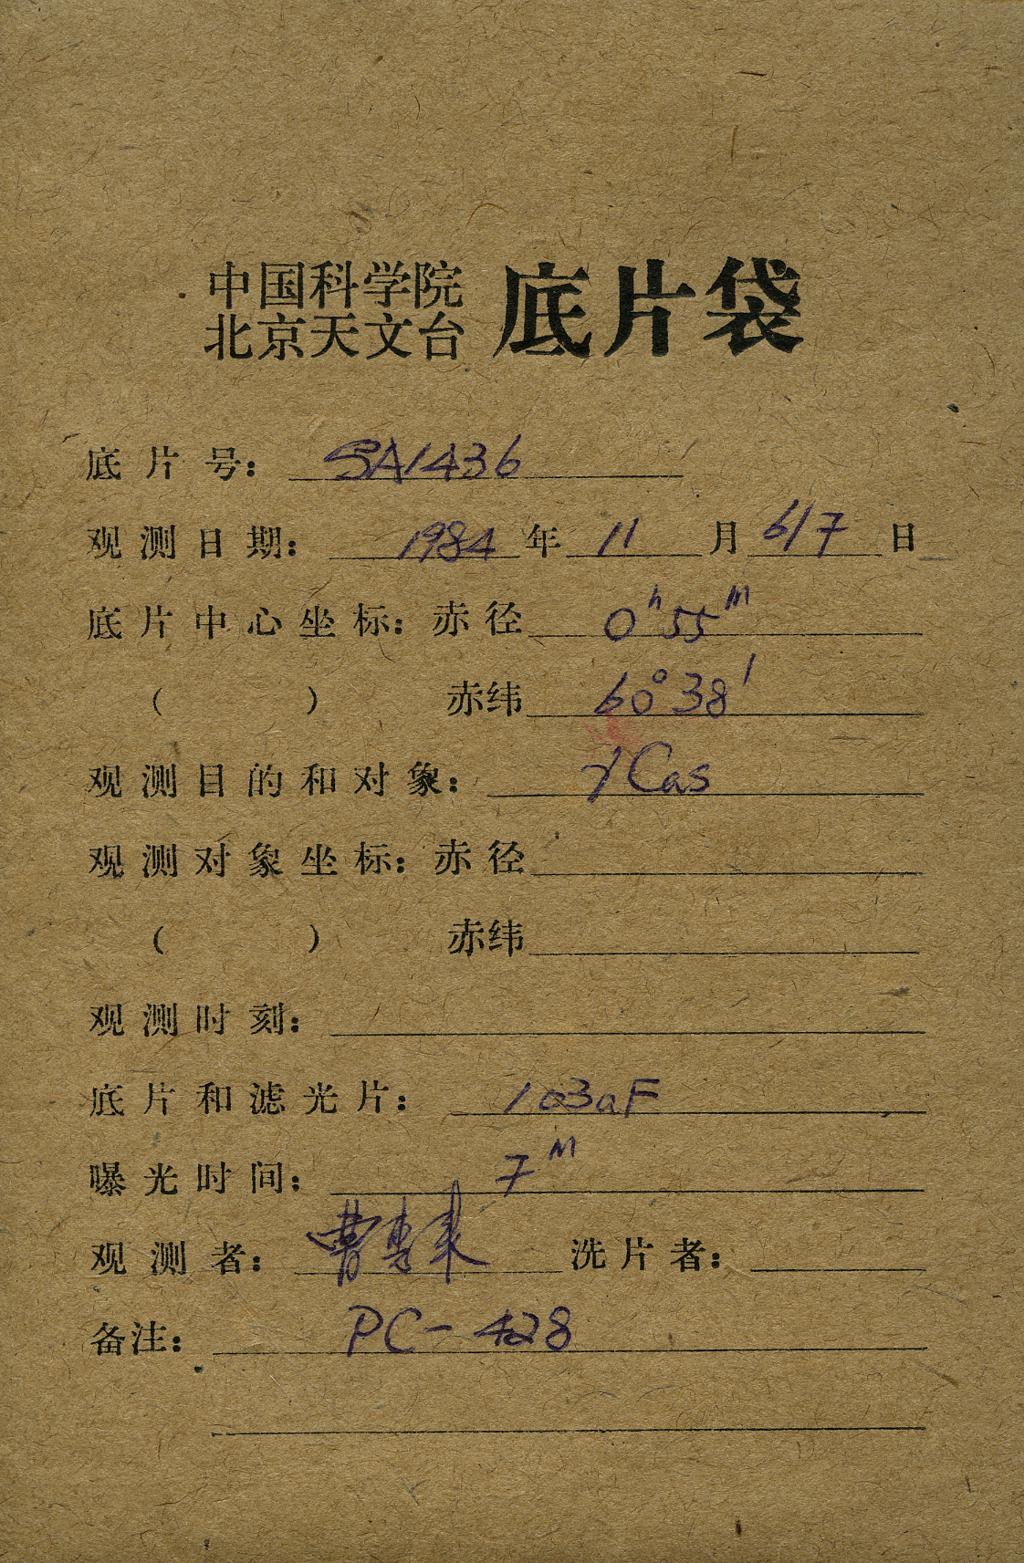 中国科学院
北京天文台 底片袋
底片号: SA1436
观测日期: 1984年11月6/7日
底片中心坐标: 赤径 0h55m
( ) 赤纬 60°38′
观测目的和对象: γCas
观测对象坐标: 赤径
( ) 赤纬
观测时刻:
底片和滤光片: 103aF
曝光时间: 7m
观测者: 曹惠来 洗片者:
备注: PC-428